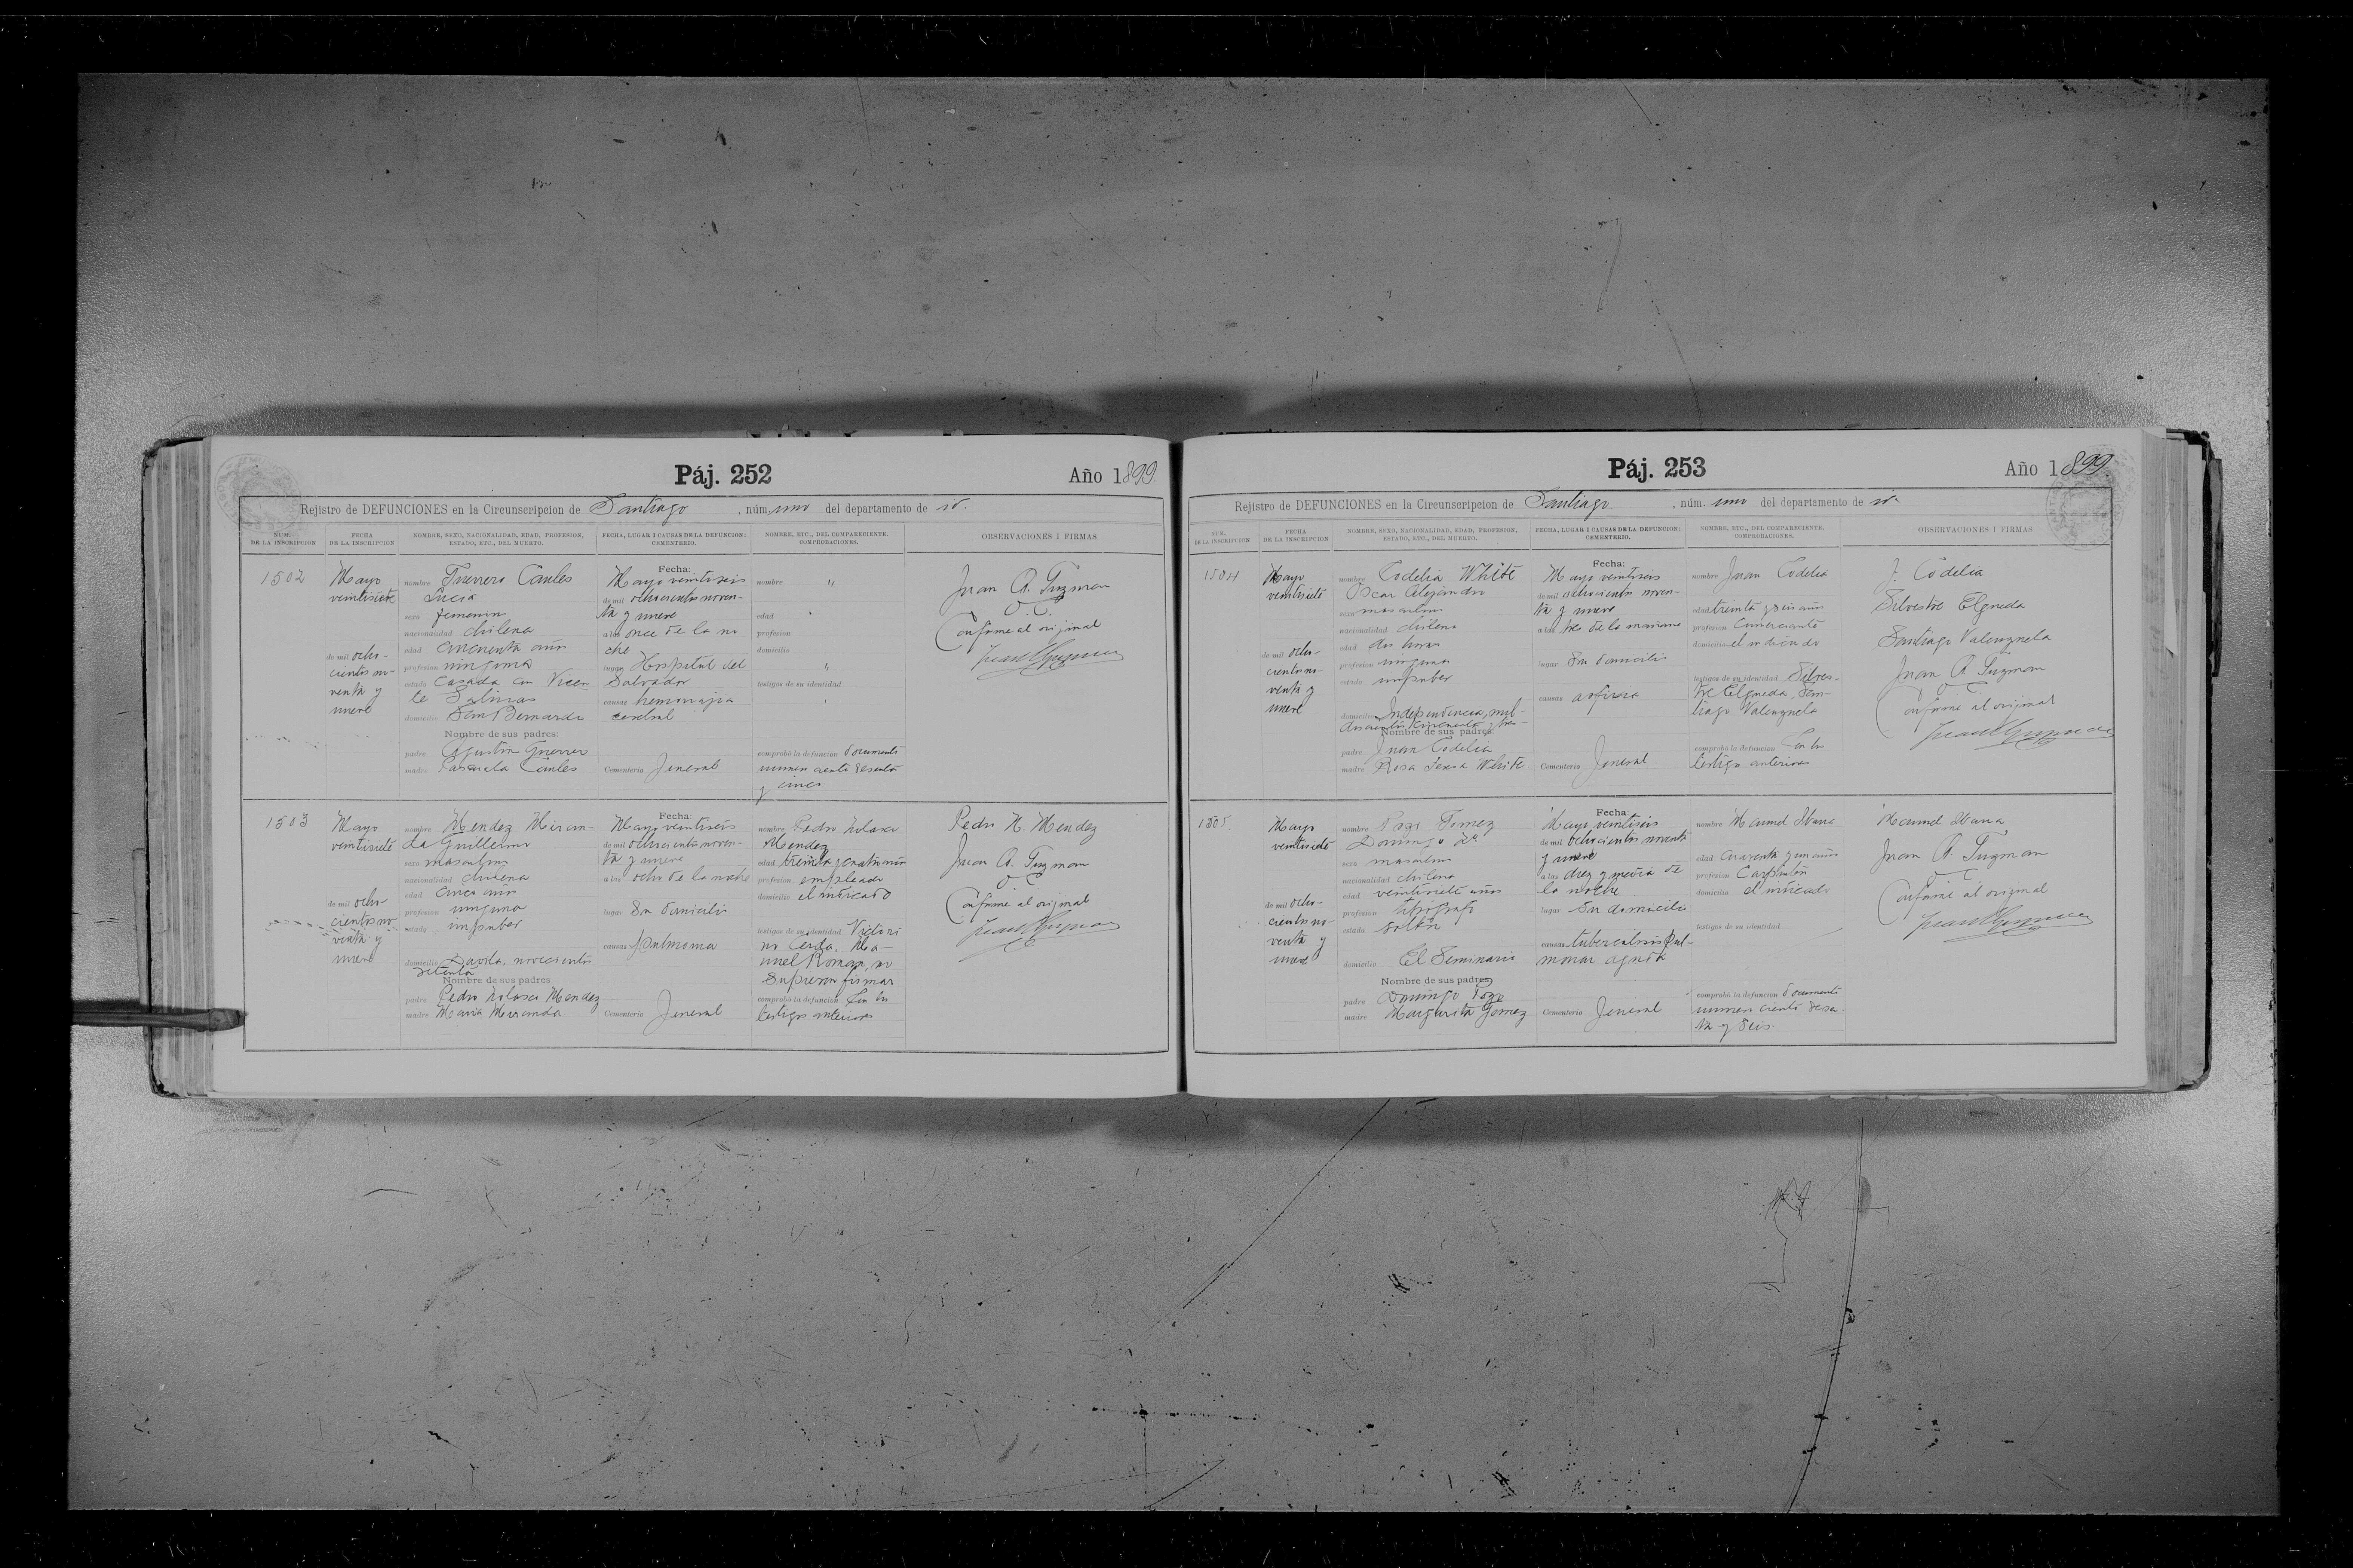 Páj. 252
Año 1899.
Rejistro de DEFUNCIONES en la Circunscripcion de Santiago, núm. uno del departamento de id.
NÚM. DE LA INSCRIPCION
FECHA DE LA INSCRIPCION
NOMBRE, SEXO, NACIONALIDAD, EDAD, PROFESION, ESTADO, ETC., DEL MUERTO.
FECHA, LUGAR I CAUSAS DE LA DEFUNCION: CEMENTERIO.
NOMBRE, ETC., DEL COMPARECIENTE. COMPROBACIONES.
OBSERVACIONES I FIRMAS
1502
Mayo
veintisiete
de mil ocho-
cientos no-
venta y
nueve
nombre Guerrero Canles
Lucia
sexo femenino
nacionalidad chilena
edad cincuenta años
profesion ninguna
estado casada con Vicen-
te Salinas
domicilio San Bernardo
Nombre de sus padres:
padre Agustin Guerrero
madre Pascuala Canles
Fecha:
Mayo veintiseis
de mil ochocientos noven-
ta y nueve
a las once de la no
che
lugar Hospital del
Salvador
causas hemorrajia
cerebral
Cementerio Jeneral
nombre "
edad "
profesion
domicilio
"
testigos de su identidad
comprobó la defuncion documento
número ciento sesenta
y cinco
Juan A. Guzman
O. C.
Conforme al orijinal
1503
Mayo
veintisiete
de mil ocho-
cientos no-
venta y
nueve
nombre Mendez Miran-
da Guillermo
sexo masculino
nacionalidad chilena
edad cinco años
profesion ninguna
estado impuber
domicilio Davila, novecientos
setenta
Nombre de sus padres:
padre Pedro Nolasco Mendez
madre Maria Miranda
Fecha:
Mayo veintiseis
de mil ochocientos noven-
ta y nueve
a las ocho de la noche
lugar Su domicilio
causas pulmonia
Cementerio Jeneral
nombre Pedro Nolasco
Mendez
edad treinta y cuatro años
profesion empleado
domicilio el indicado
testigos de su identidad Victori
no Cerda, Ma-
nuel Roman, no
supieron firmar
comprobó la defuncion Con los
testigos anteriores
Pedro N. Mendez
Juan A. Guzman
O. C.
Conforme al orijinal
Páj. 253
Año 1899
Rejistro de DEFUNCIONES en la Circunscripcion de Santiago, núm. uno del departamento de id.
NÚM. DE LA INSCRIPCION
FECHA DE LA INSCRIPCION
NOMBRE, SEXO, NACIONALIDAD, EDAD, PROFESION, ESTADO, ETC., DEL MUERTO.
FECHA, LUGAR I CAUSAS DE LA DEFUNCION: CEMENTERIO.
NOMBRE, ETC., DEL COMPARECIENTE. COMPROBACIONES.
OBSERVACIONES I FIRMAS
1504
Mayo
veintisiete
de mil ocho-
cientos no-
venta y
nueve
nombre Codelia White
Oscar Alejandro
sexo masculino
nacionalidad chilena
edad dos horas
profesion ninguna
estado impuber
domicilio Independencia, mil
doscientos cincuenta y tres
Nombre de sus padres:
padre Juan Codelia
madre Rosa Teresa White
Fecha:
Mayo veintiseis
de mil ochocientos noven-
ta y nueve
a las tres de la mañana
lugar Su domicilio
causas asfixia
Cementerio Jeneral
nombre Juan Codelia
edad treinta y seis años
profesion Comerciante
domicilio el indicado
testigos de su identidad Silves-
tre Elgueda, San-
tiago Valenzuela
comprobó la defuncion Con los
testigos anteriores
J. Codelia
Silvestre Elgueda
Santiago Valenzuela
Juan A. Guzman
O. C.
Conforme al orijinal
1505
Mayo
veintisiete
de mil ocho-
cientos no-
venta y
nueve
nombre Pozi Gomez
Domingo 2º
sexo masculino
nacionalidad chilena
edad veintisiete años
profesion tipógrafo
estado soltero
domicilio El Seminario
Nombre de sus padres:
padre Domingo
madre Margarita Gomez
Fecha:
Mayo veintiseis
de mil ochocientos noventa
y nueve
a las diez y media de
la noche
lugar Su domicilio
causas tuberculosis pul-
monar aguda
Cementerio Jeneral
nombre Manuel
edad cuarenta y un años
profesion Carpintero
domicilio el indicado
testigos de su identidad
comprobó la defuncion documento
número ciento sesen-
ta y seis.
Manuel
Juan A. Guzman
O. C.
Conforme al orijinal